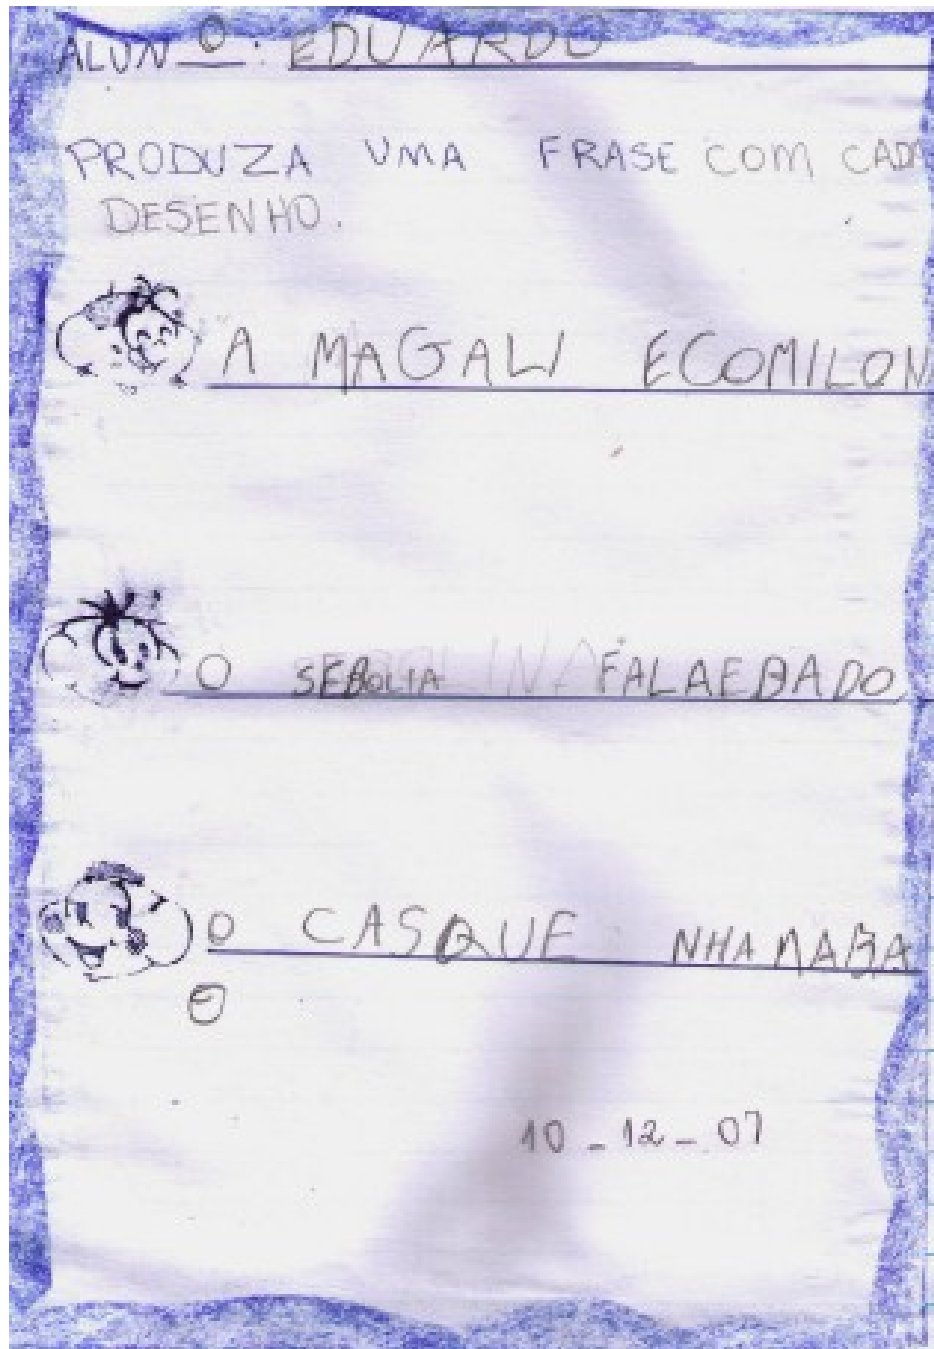 ALUNO: EDUARDO
PRODUZA UMA FRASE COM CADA
DESENHO.
A MAGALI ECOMILON
O SEBOLIA FALAEBADO
O CASQUE NHA MABA
O
10-12-07